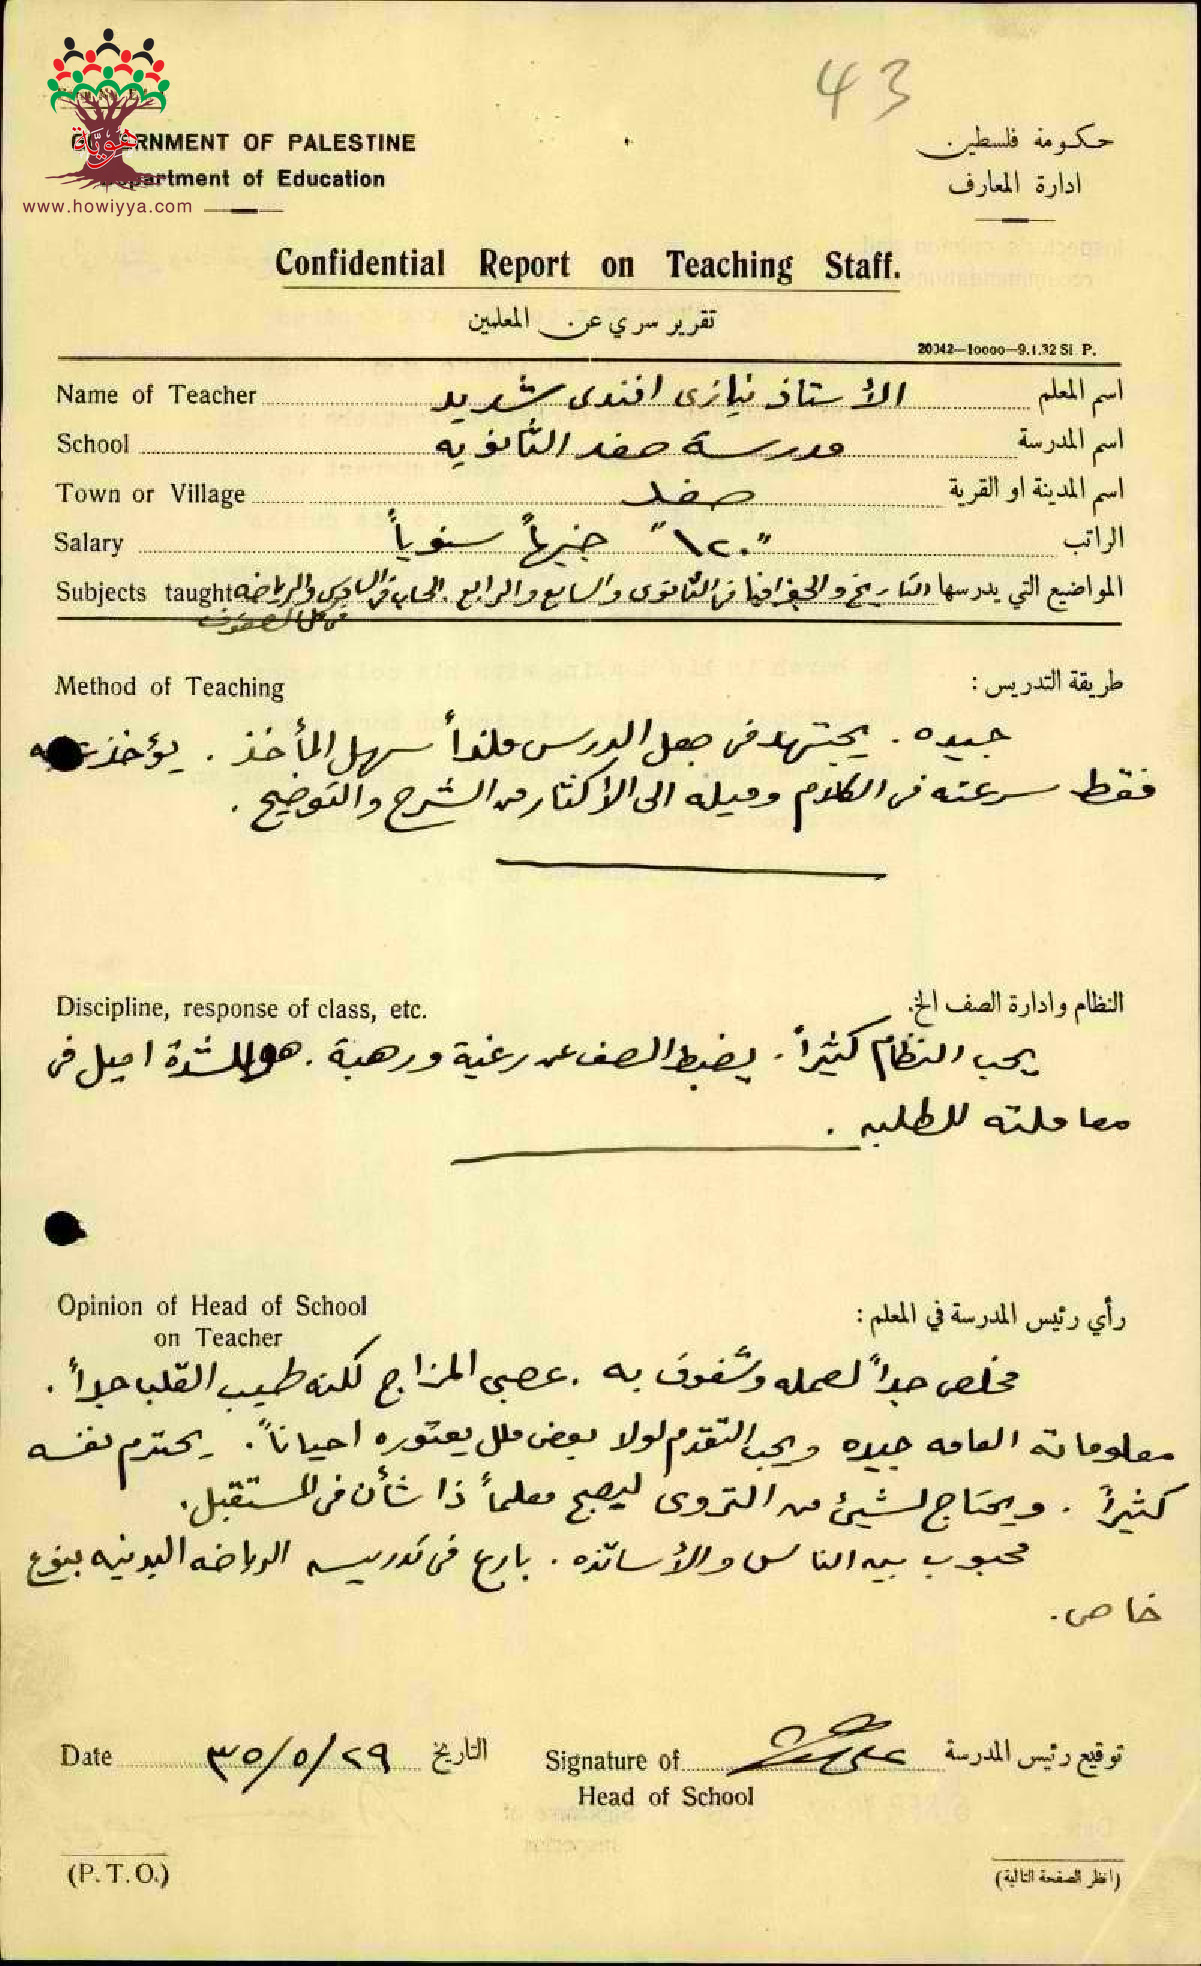 43
GOVERNMENT OF PALESTINE
حكومة فلسطين
Department of Education
ادارة المعارف
هوية
www.howiyya.com
Confidential Report on Teaching Staff.
تقرير سري عن المعلمين
20342—10000—9.1.32 Si P.
Name of Teacher الأستاذ نيازي افندي شديد اسم المعلم
School مدرسة صفد الثانويه اسم المدرسة
Town or Village صفد اسم المدينة او القرية
Salary "١٢٠" جنيهاً سنوياً الراتب
Subjects taught المواضيع التي يدرسها التاريخ والجغرافيا في الثانوي والسابع والرابع. الحساب في السادس والرياضه
في كل الصفوف
Method of Teaching طريقة التدريس :
جيده . يجتهد في جعل الدرس ملذاً سهل المأخذ . يؤخذ به
فقط سرعته في الكلام وميله الى الاكثار من الشرح والتوضيح .
Discipline, response of class, etc. النظام وادارة الصف الخ.
يحب النظام كثيراً . يضبط الصف عن رغبة ورهبة . هو للشدة اميل في
معاملته للطلبه .
Opinion of Head of School رأي رئيس المدرسة في المعلم :
on Teacher
مخلص جداً لعمله وشغوف به . عصبي المزاج لكنه طيب القلب جداً .
معلوماته العامه جيده ويحب التقدم لولا بعض ملل يعتوره احياناً . يحترم نفسه
كثيراً . ويحتاج لشيئ من التروي ليصبح معلماً ذا شأن في المستقبل .
محبوب بين الناس والأساتذه . بارع في تدريس الرياضه البدنيه بنوع
خاص .
Date ٢٩/٥/٣٥ التاريخ Signature of توقيع رئيس المدرسة
Head of School
(P.T.O.) (انظر الصفحة التالية)